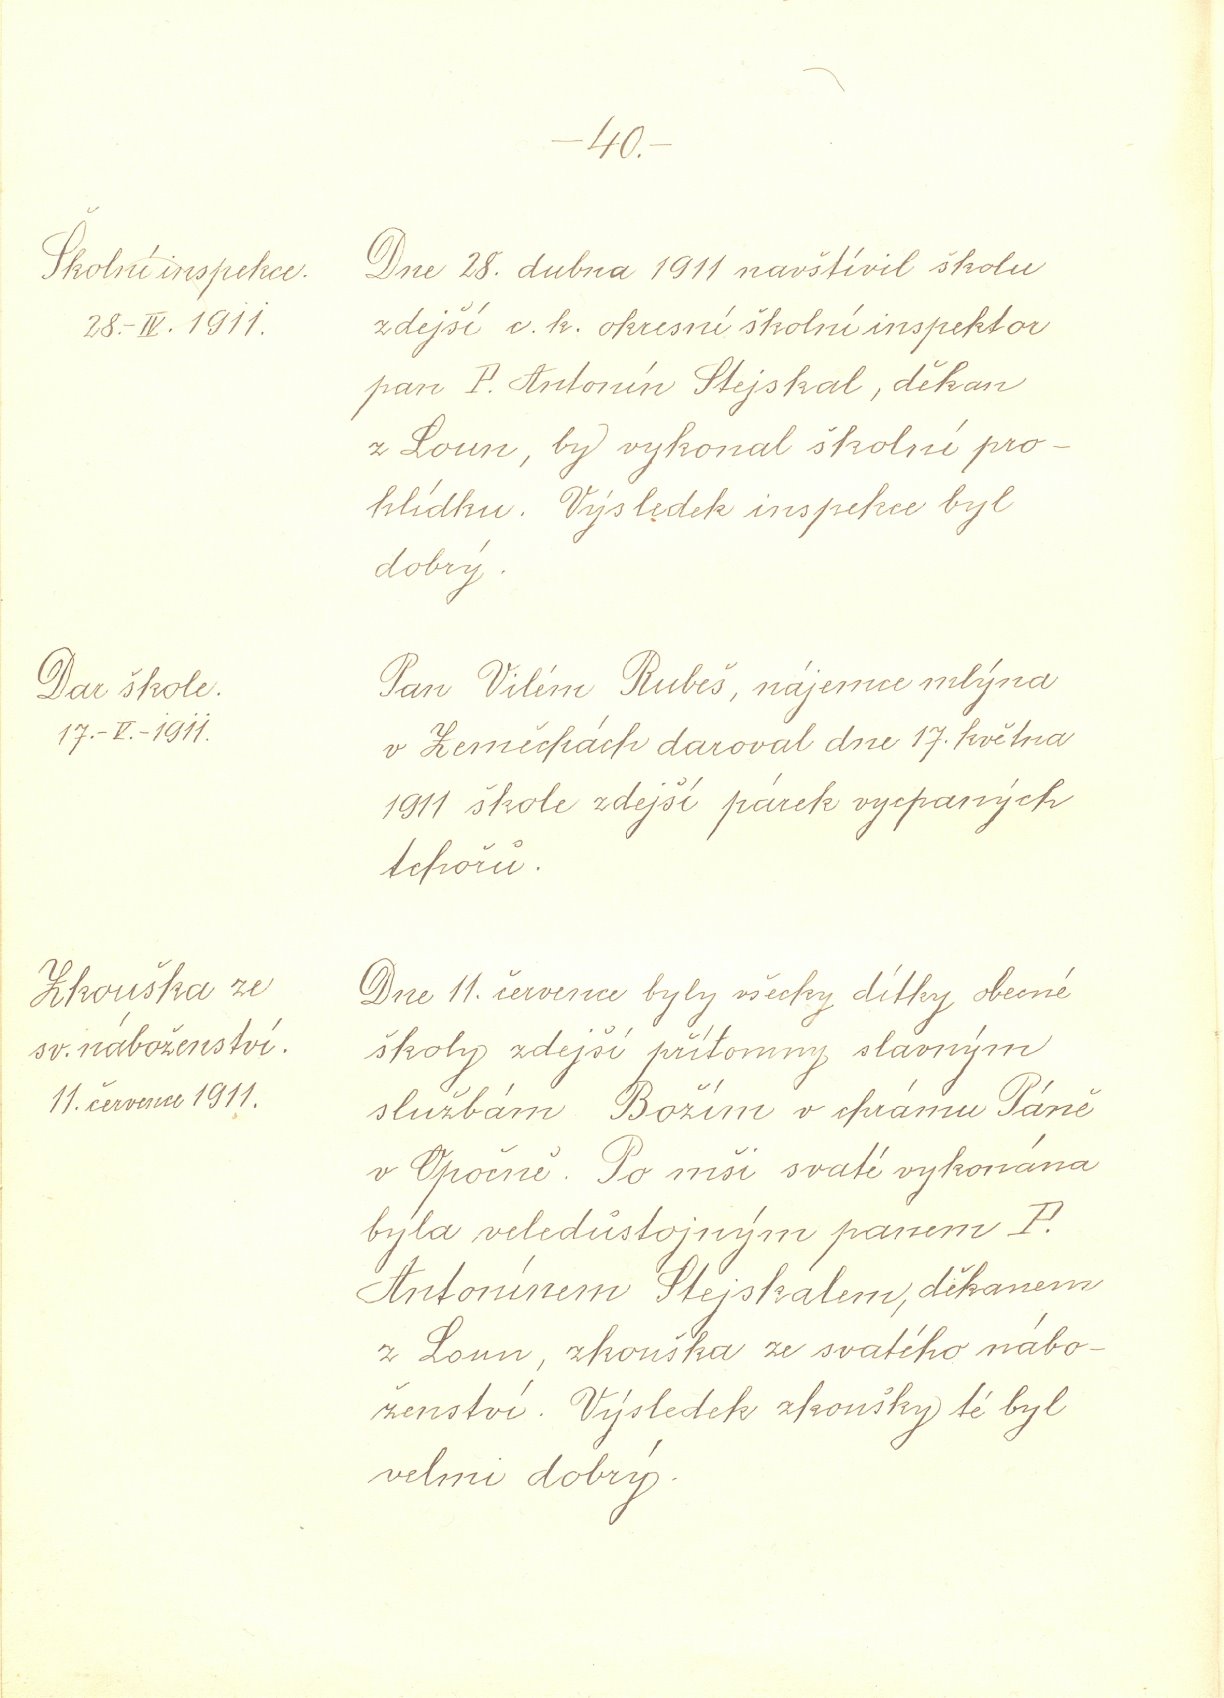 -40.-
Školní inspekce.
28.-IV. 1911.
Dne 28. dubna 1911 navštívil školu
zdejší c. k. okresní školní inspektor
pan P. Antonín Stejskal, děkan
z Loun, by vykonal školní pro-
hlídku. Výsledek inspekce byl
dobrý.
Dar škole.
17.-V.-1911.
Pan Vilém Rubeš, nájemce mlýna
v Zeměchách daroval dne 17. května
1911 škole zdejší párek vycpaných
tchořů.
Zkouška ze
sv. náboženství.
11. července 1911.
Dne 11. července byly všecky dítky obecné
školy zdejší přítomny slavným
službám Božím v chrámu Páně
v Opočně. Po mši svaté vykonána
byla veledůstojným panem P.
Antonínem Stejskalem, děkanem
z Loun, zkouška ze svatého nábo-
ženství. Výsledek zkoušky té byl
velmi dobrý.